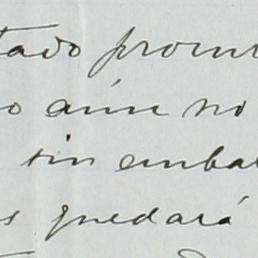 tado prome
o aún no
sin embar
s quedará